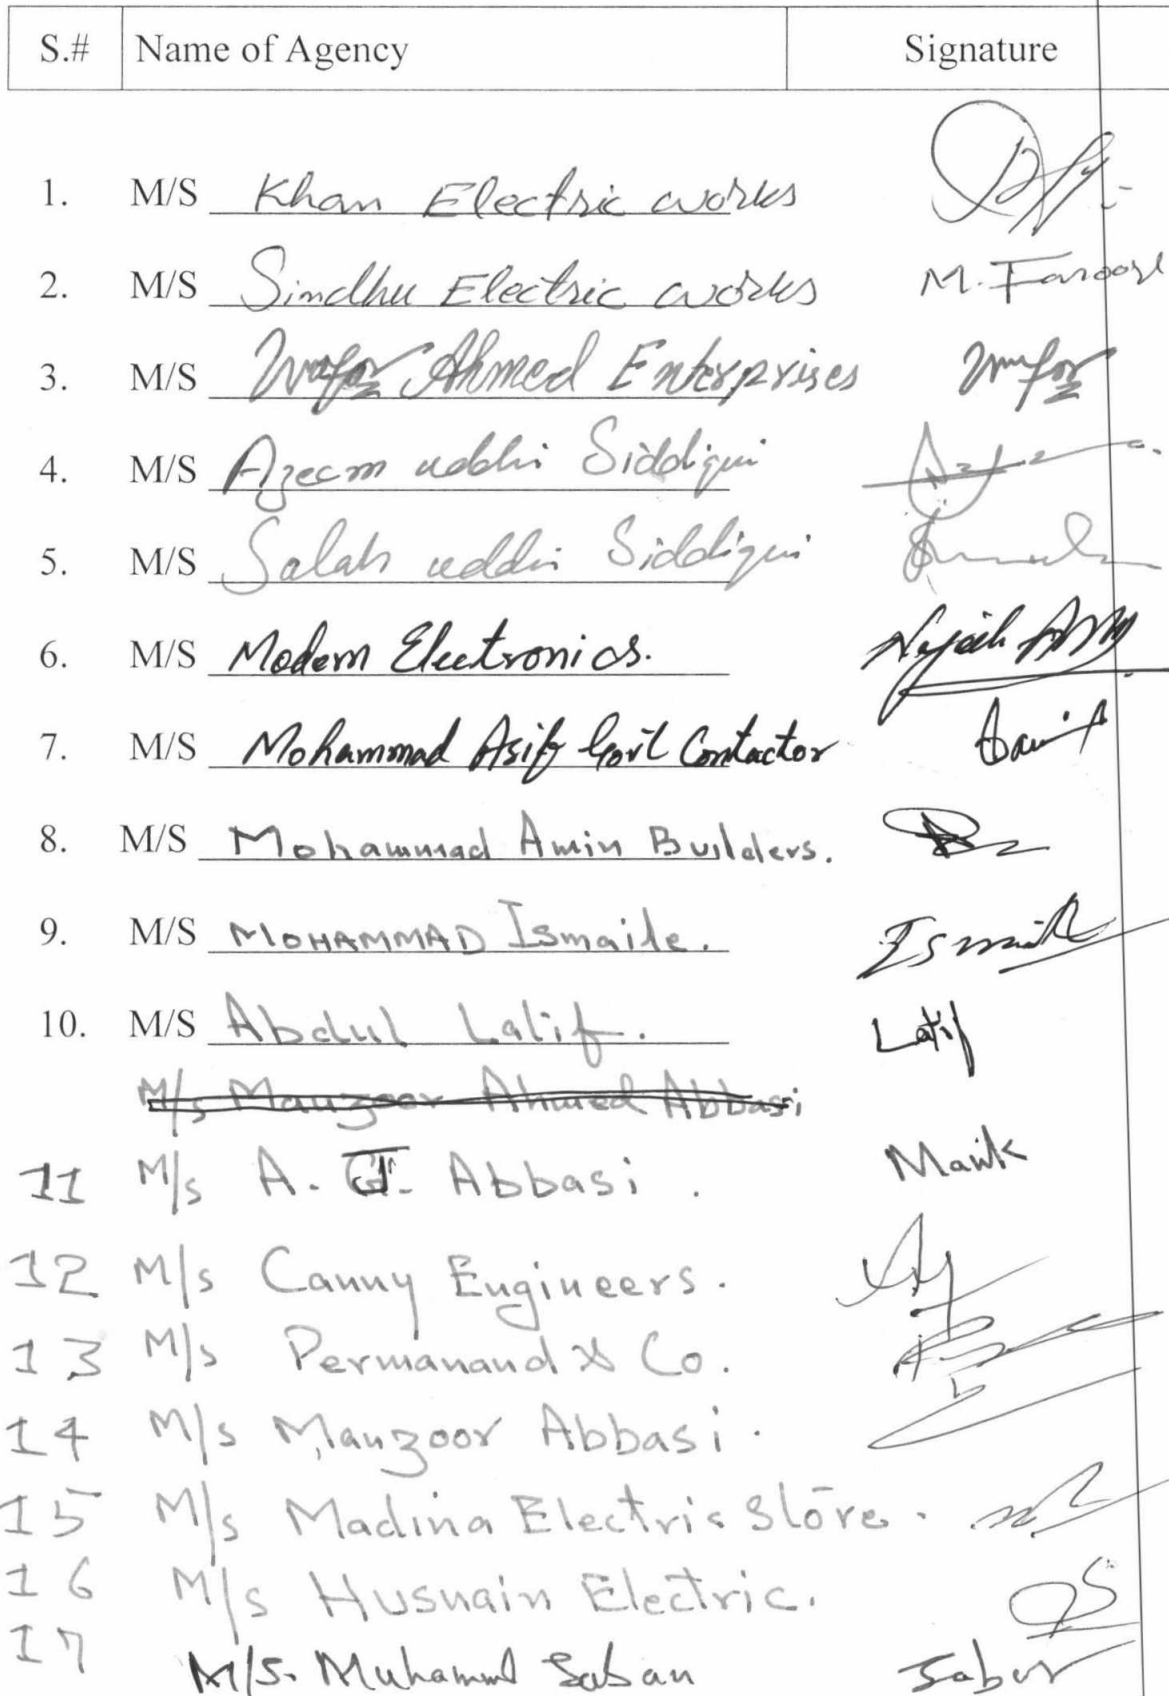 S.# Name of Agency Signature
1. M/S Khan Electric works
2. M/S Sindhu Electric works M. Farooq
3. M/S Ahmed Enterprises
4. M/S Azeem uddin Siddiqui
5. M/S Salah uddin Siddiqui
6. M/S Modern Electronics.
7. M/S Mohammad Asif Govt Contactor
8. M/S Mohammad Amin Builders.
9. M/S MOHAMMAD Ismaile. Ismail
10. M/S Abdul Latif. Latif
M/s Manzoor Ahmed Abbasi
11 M/s A. Abbasi.
12 M/s Canny Engineers.
13 M/s Permanand & Co.
14 M/s Manzoor Abbasi.
15 M/s Madina Electric Store.
16 M/s Husnain Electric.
17 M/S. Saban